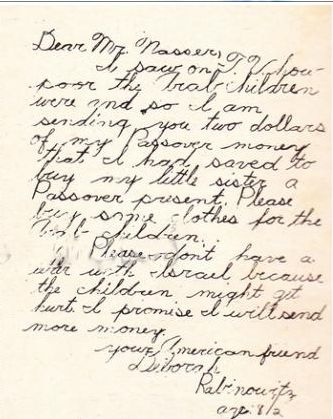 Dear Mr. Nasser,
I saw on T.V. how
poor the Arab children
were and so I am
sending you two dollars
of my Passover money
that I had saved to
buy my little sister a
Passover present. Please
buy some clothes for the
Arab children.
Please don't have a
war with Israel because
the children might get
hurt. I promise I will send
more money.
your American friend
Deborah
Rabinowitz
age 8 1/2